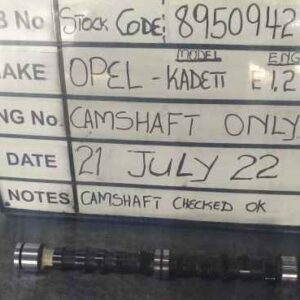 B No STOCK CODE: 8950942
MODEL ENG
MAKE OPEL - KADETT E1.2
NG No. CAMSHAFT ONLY
DATE 21 JULY 22
NOTES CAMSHAFT CHECKED OK